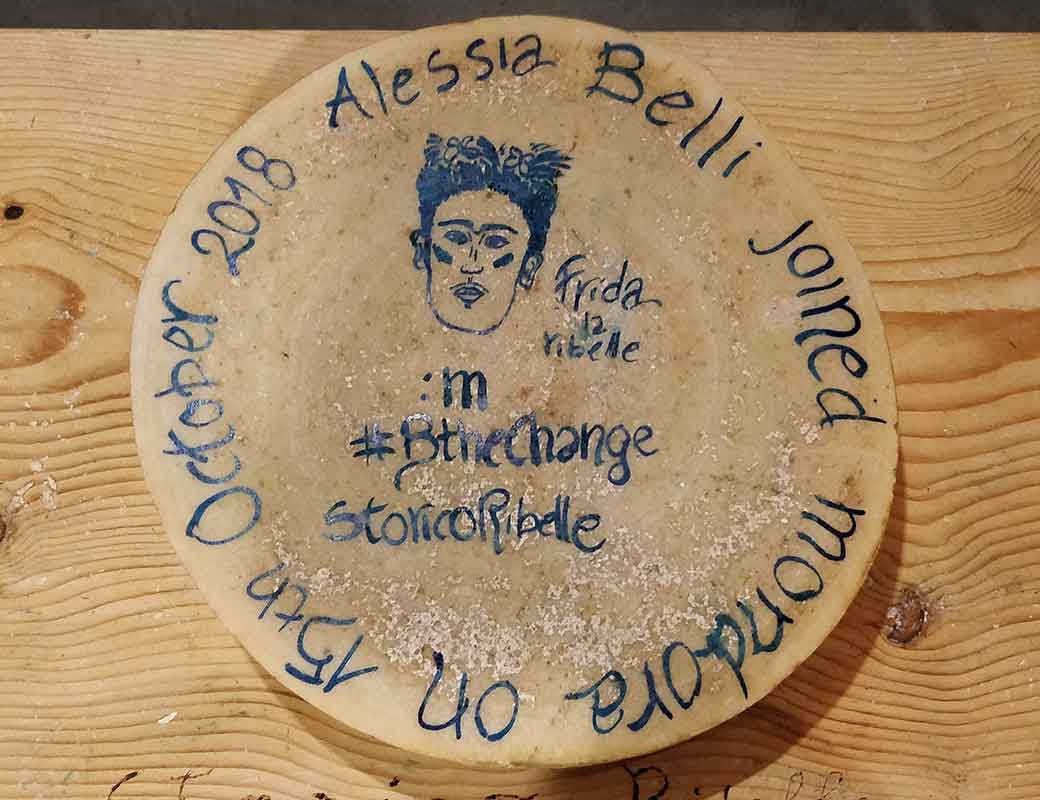 Alessia Belli joined mondora on 15th October 2018
Frida
la
ribelle
:m
#BtheChange
StoricoRibelle